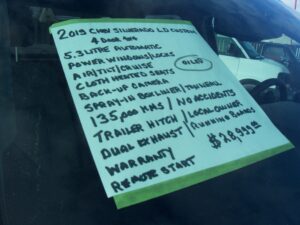 2019 CHEV SILVERADO L.D. CUSTOM
4 DOOR 4x4
5.3 LITRE AUTOMATIC
POWER WINDOWS/LOCKS
AIR/TILT/CRUISE
CLOTH HEATED SEATS
BACK-UP CAMERA
SPRAY-IN BOXLINER / TONNEAU
135,000 KMS / NO ACCIDENTS
TRAILER HITCH / LOCAL OWNER
DUAL EXHAUST / RUNNING BOARDS
WARRANTY $28,999.00
REMOTE START